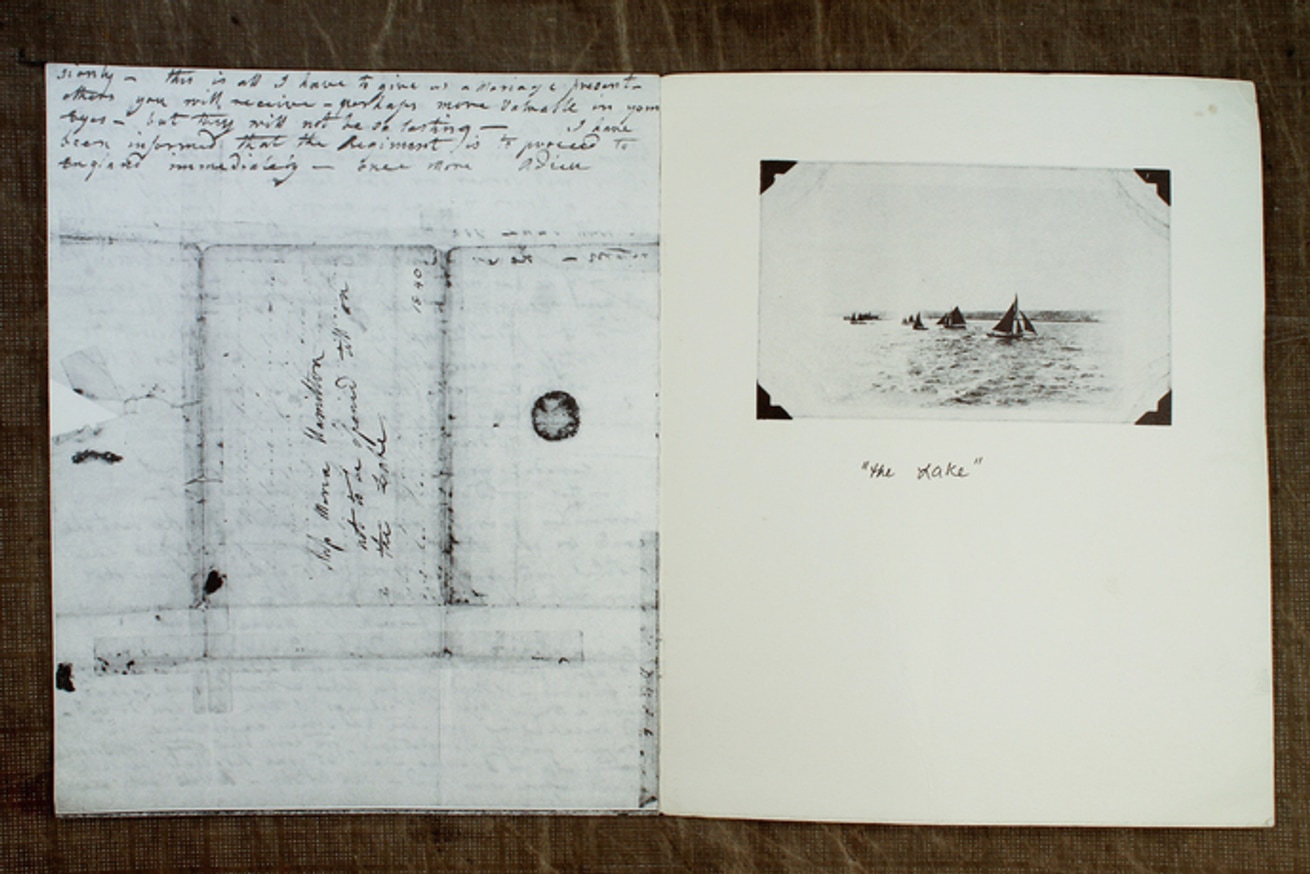 sionly – this is all I have to give as a Mariage present –
others you will receive – perhaps more valuable in your
Eyes – but they will not be so lasting – I have
been informed that the Regiment is to proceed to
England immediately – Once More Adieu
Miss Maria Hamilton
not to be opened till on
the Lake
1840
"the Lake"